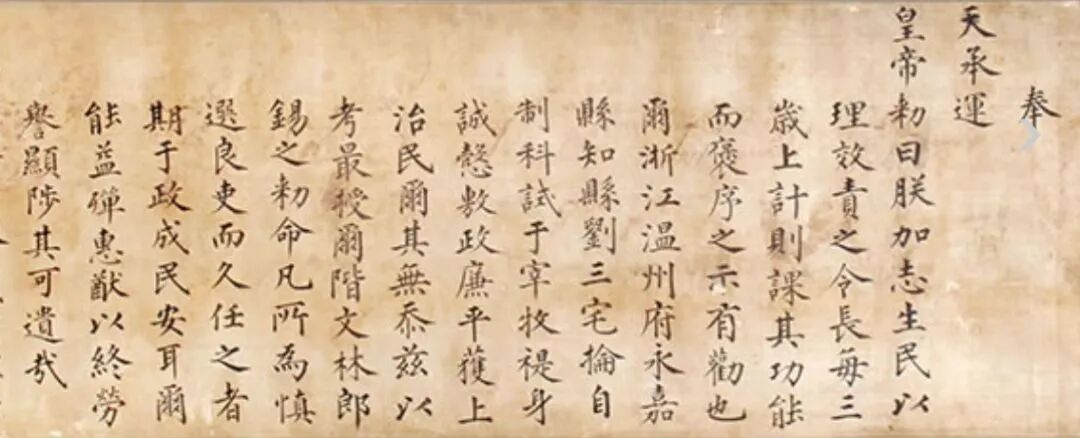 奉
天承運
皇帝勅曰朕加志生民以
理效責之令長每三
歲上計則課其功能
而褒序之示有勸也
爾浙江溫州府永嘉
縣知縣劉三宅掄自
制科試于宰牧禔身
誠慤敷政廉平獲上
治民爾其無忝茲以
考最授爾階文林郎
錫之勅命凡所為慎
選良吏而久任之者
期于政成民安耳爾
能益殫惠猷以終勞
譽顯陟其可遺哉